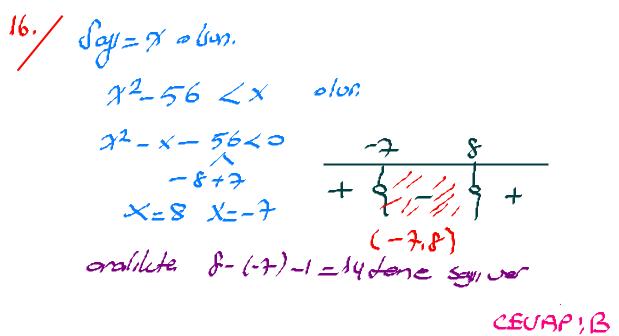 16./ Sayı = x olsun.
x² - 56 < x olur.
x² - x - 56 < 0
-8 +7
x = 8 x = -7
-7 8
+ - +
(-7, 8)
aralıkta 8 - (-7) - 1 = 14 tane sayı var
CEVAP: B